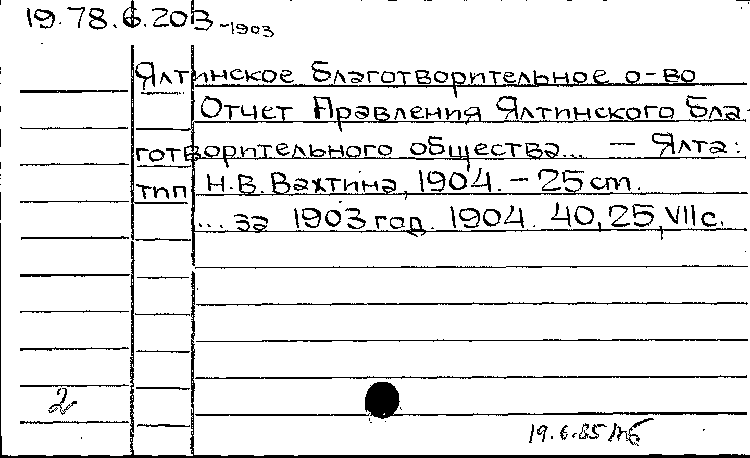 19.78.6.203-1903
Ялтинское благотворительное о-во
Отчет Правления Ялтинского бла-
готворительного общества... — Ялта:
тип Н.В. Вахтина, 1904. – 25 cm.
... за 1903 год. 1904. 40, 25, VII с.
2
19.6.85